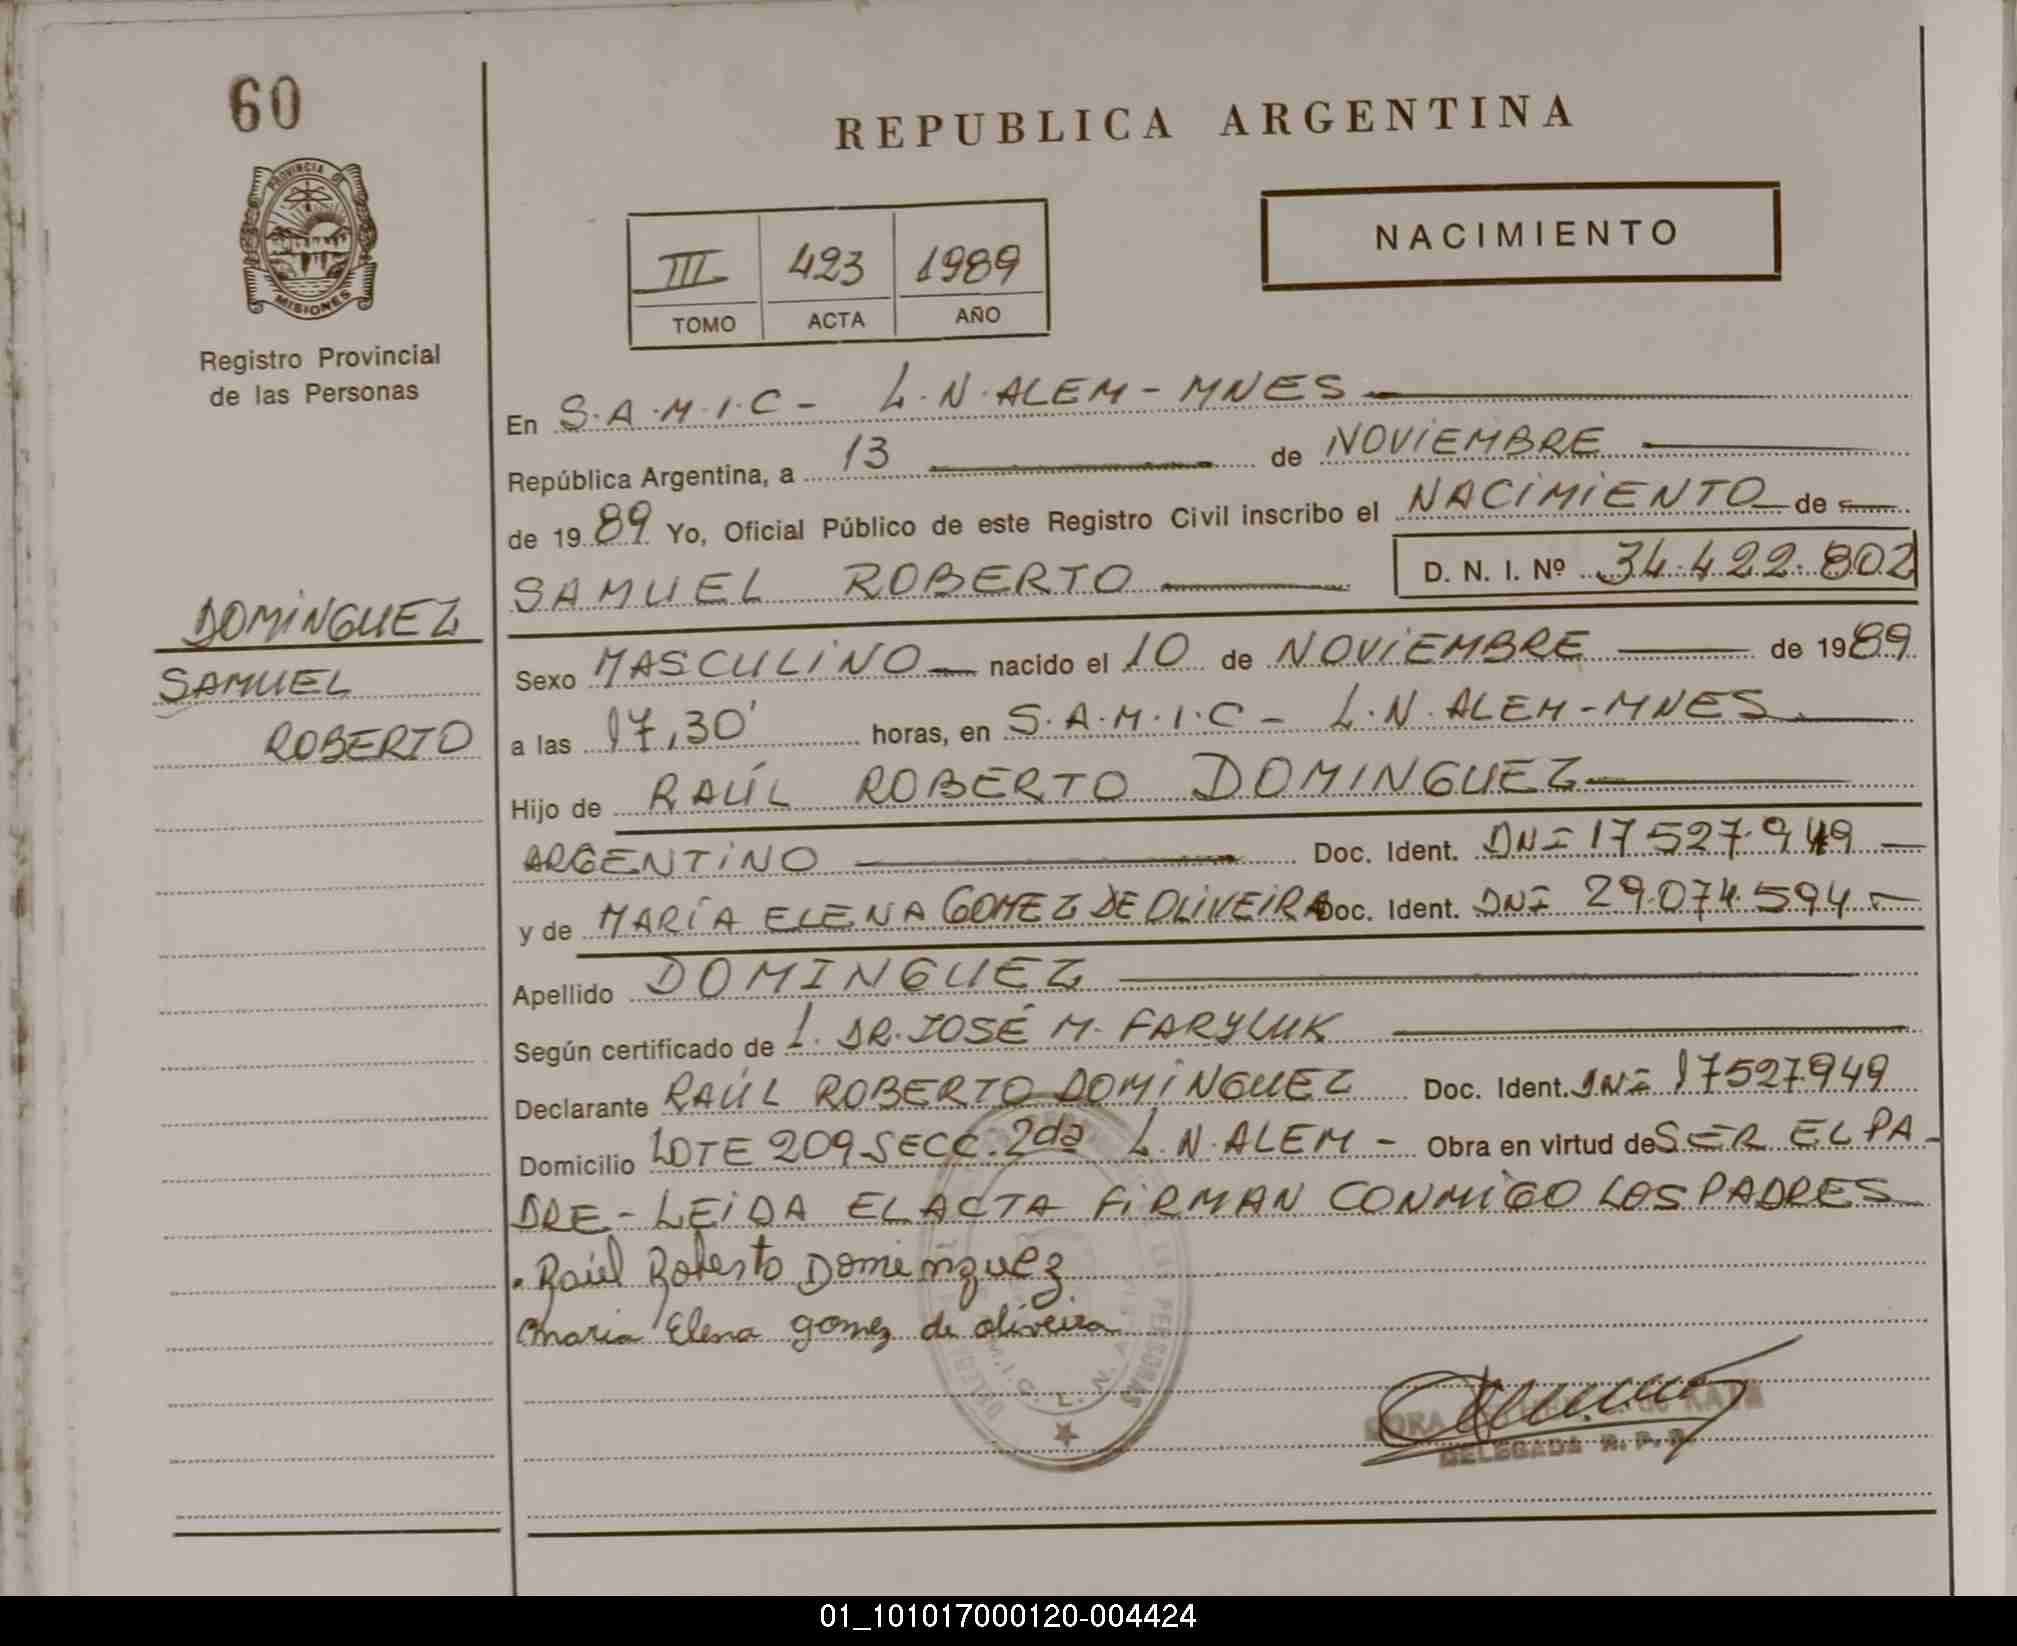 60
PROVINCIA DE
MISIONES
Registro Provincial
de las Personas
DOMINGUEZ
SAMUEL
ROBERTO
REPUBLICA ARGENTINA
NACIMIENTO
III 423 1989
TOMO ACTA AÑO
En S.A.M.I.C - L.N.ALEM - MNES
República Argentina, a 13 de NOVIEMBRE
de 1989 Yo, Oficial Público de este Registro Civil inscribo el NACIMIENTO de
SAMUEL ROBERTO D. N. I. Nº 34.422.802
Sexo MASCULINO nacido el 10 de NOVIEMBRE de 1989
a las 17,30' horas, en S.A.M.I.C - L.N.ALEM - MNES
Hijo de RAÚL ROBERTO DOMINGUEZ
ARGENTINO Doc. Ident. DNI 17527.949
y de MARÍA ELENA GOMEZ DE OLIVEIRA Doc. Ident. DNI 29.074.594
Apellido DOMINGUEZ
Según certificado de L. DR. JOSÉ M. FARYLUK
Declarante RAÚL ROBERTO DOMINGUEZ Doc. Ident. DNI 17527949
Domicilio LOTE 209 SECC. 2da L.N.ALEM - Obra en virtud de SER EL PA-
DRE - LEIDA EL ACTA FIRMAN CONMIGO LOS PADRES
Raúl Roberto Dominguez
Maria Elena gomez de oliveira
DELEGADA R. P. P.
01_101017000120-004424